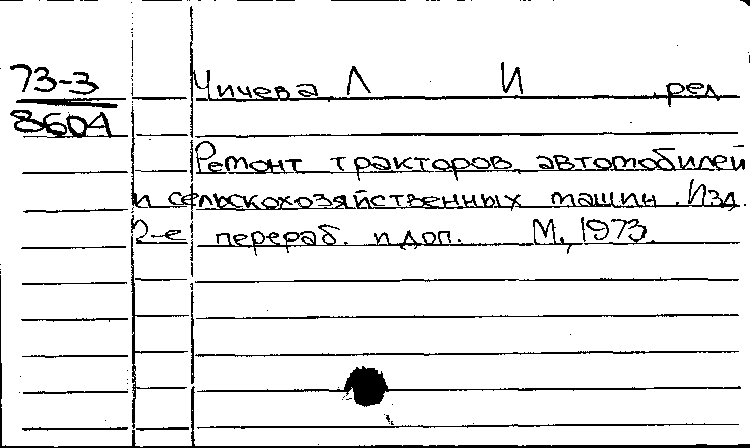 73-3
8604
Чичева, Л И , ред
Ремонт тракторов, автомобилей
и сельскохозяйственных машин. Изд.
2-е перераб. и доп. М., 1973.